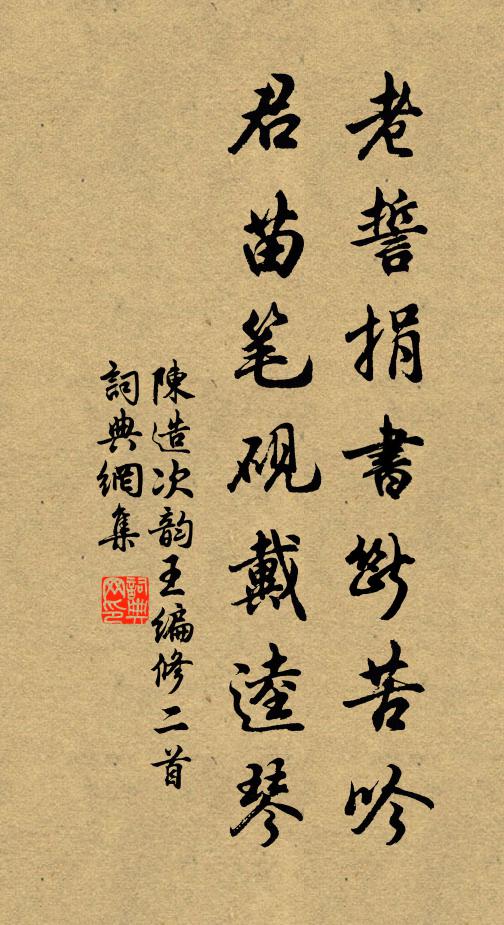 老誓捐書斷苦吟
君苗笔硯戴逵琴
陳造次韵王編修二首
詞典網集
詞典网印